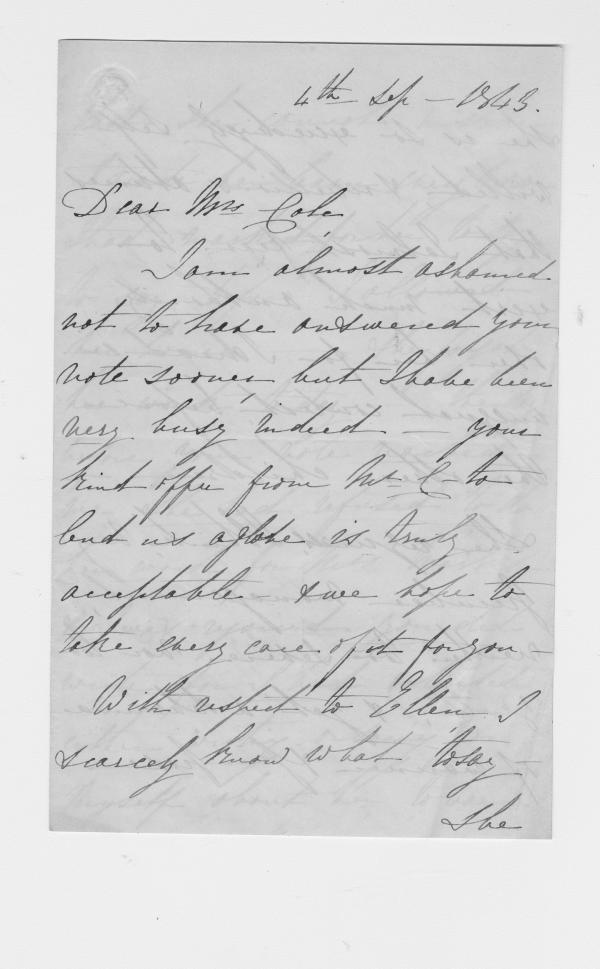 4th Sep - 1843.
Dear Mrs Cole,
I am almost ashamed
not to have answered your
note sooner, but I have been
very busy indeed - your
kind offer from Mr C- to
lend us a globe is truly
acceptable - & we hope to
take every care of it for you -
With respect to Ellen I
scarcely know what to say -
she